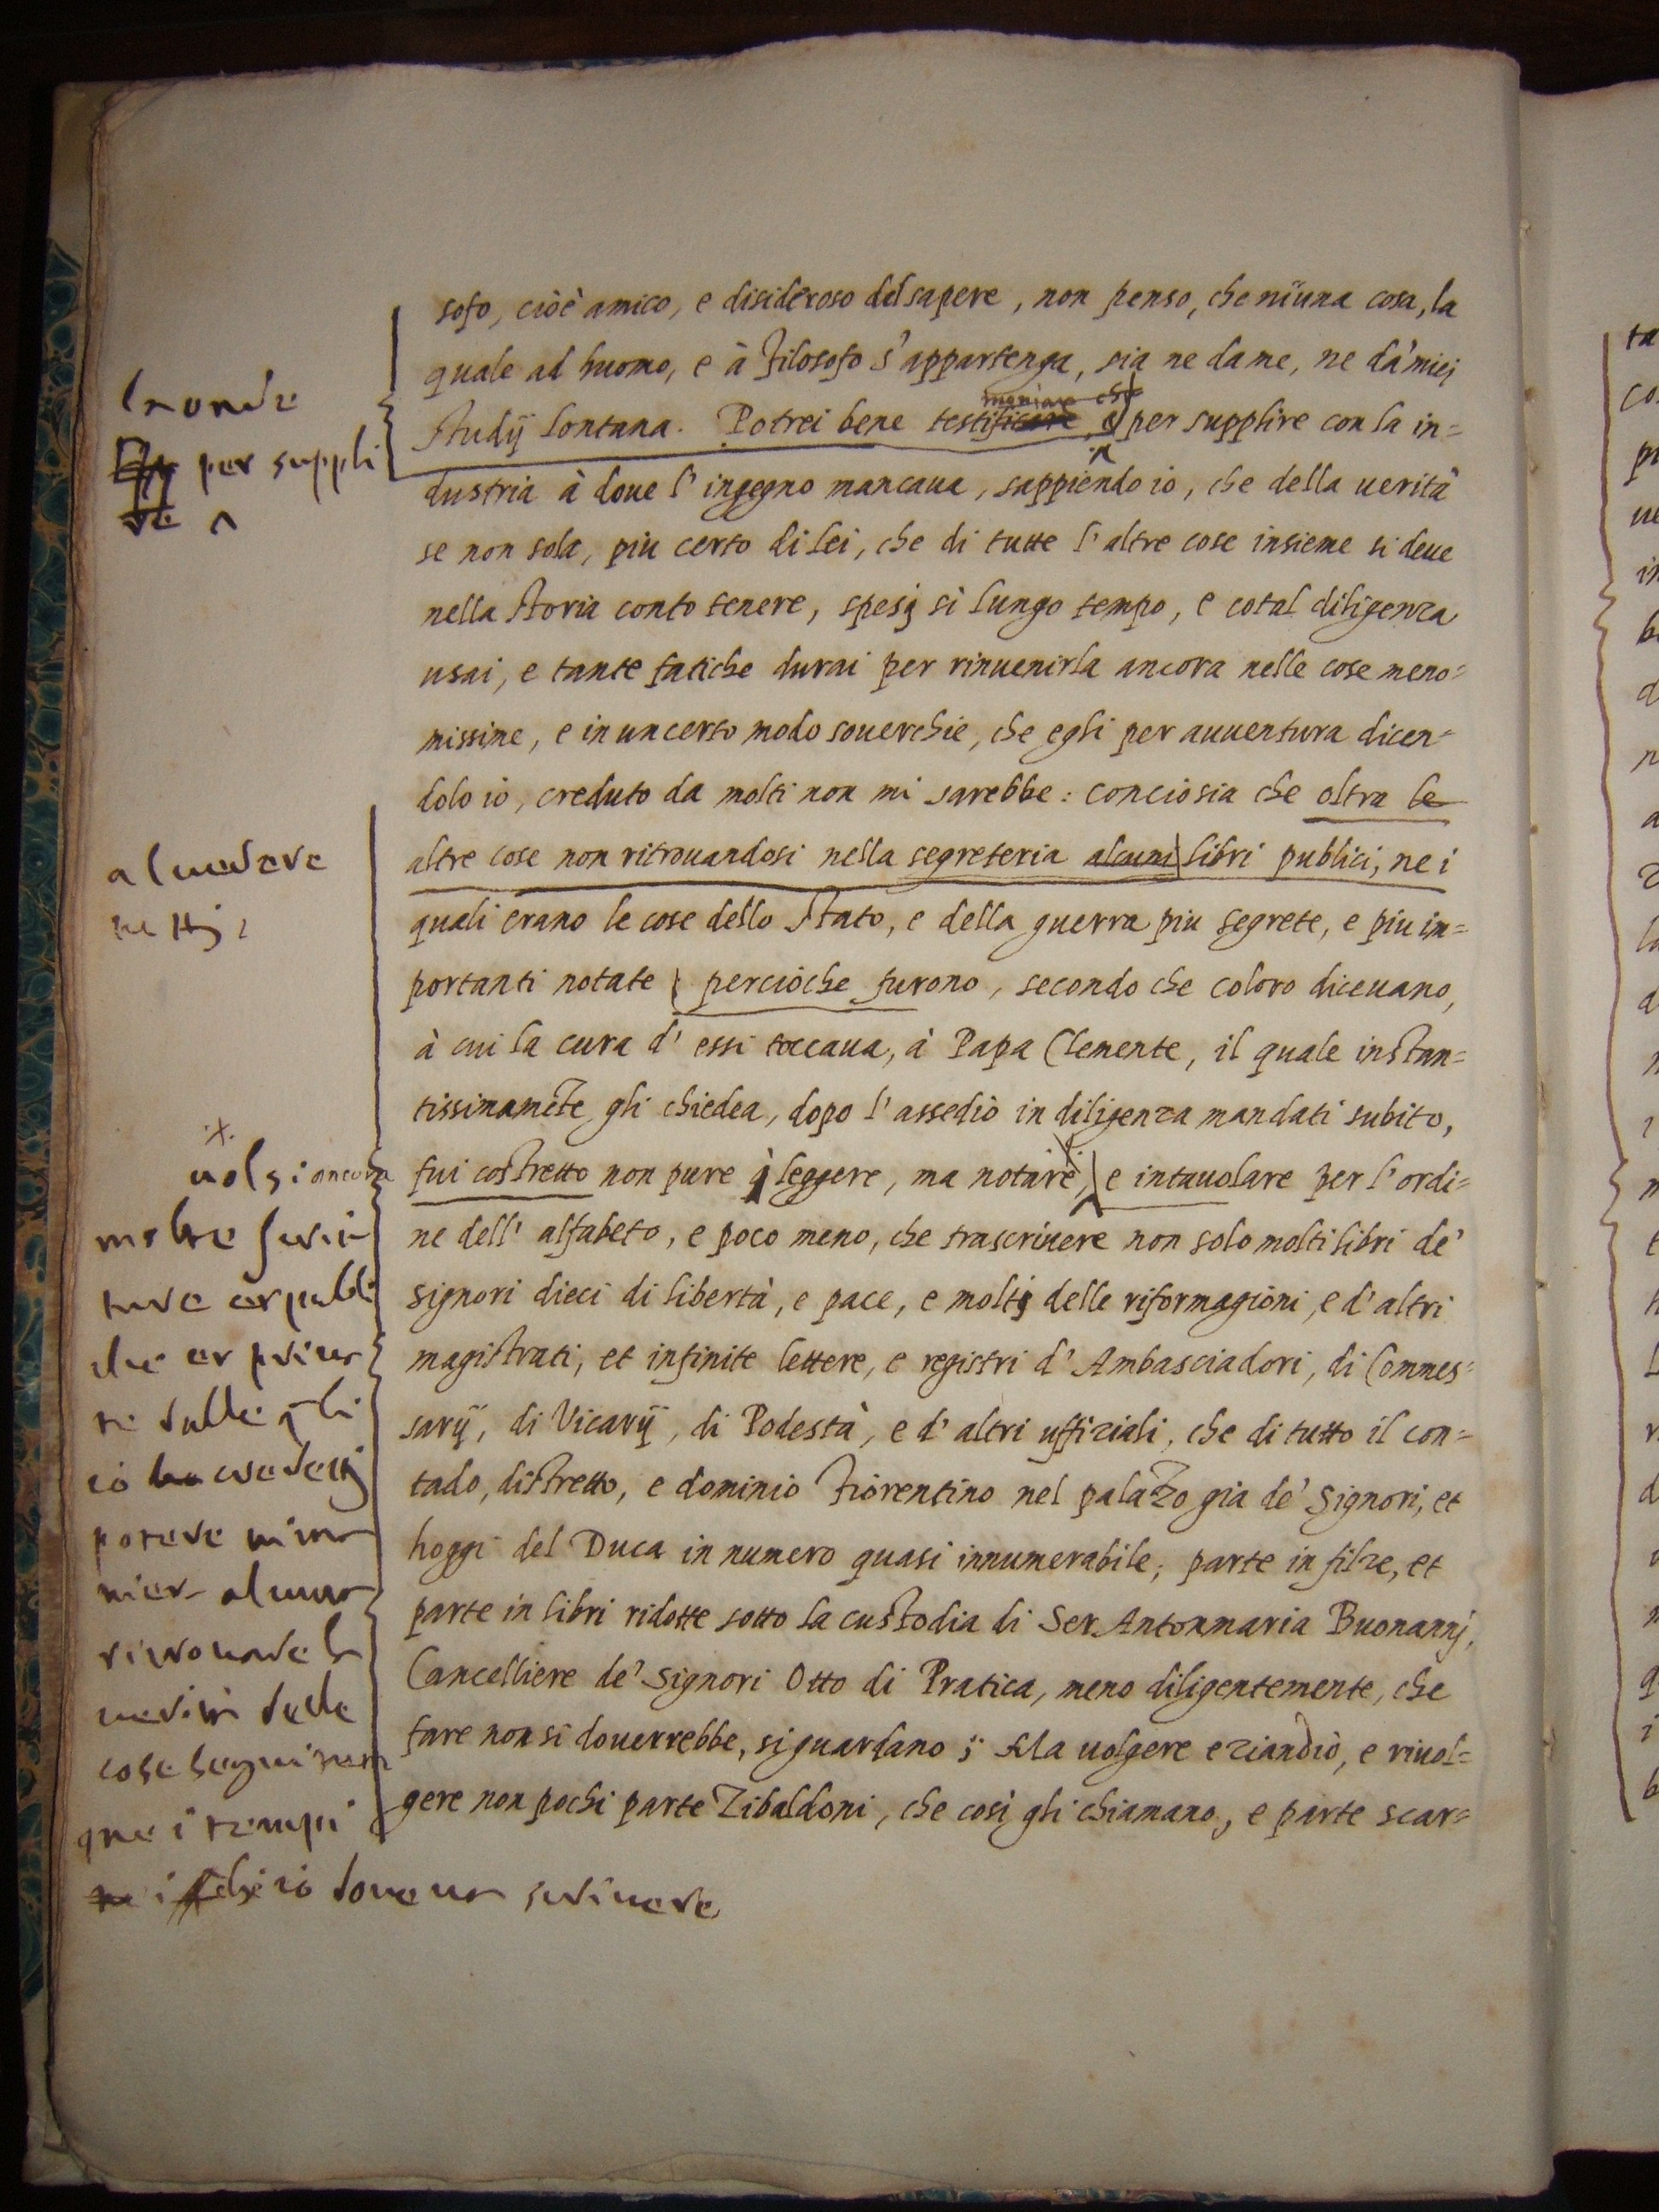 sofo, cioè amico, e disideroso del sapere, non penso, che niuna cosa, la
quale ad huomo, e à Filosofo s'appartenga, sia ne da me, ne da' miei
studij lontana. Potrei bene testificare che per supplire con la in=
dustria à doue l'ingegno mancaua, sappiendo io, che della uerità
se non sola, piu certo di lei, che di tutte l'altre cose insieme si deue
nella storia conto tenere, spesi sì lungo tempo, e cotal diligenza
usai, e tante fatiche durai per rinuenirla ancora nelle cose meno=
missime, e in un certo modo souerchie, che egli per auuentura dicen=
dolo io, creduto da molti non mi sarebbe: conciosia che oltra le
altre cose non ritrouandosi nella segreteria alcuni libri publici, ne i
quali erano le cose dello stato, e della guerra piu segrete, e piu im=
portanti notate percioche furono, secondo che coloro diceuano,
à cui la cura d'essi toccaua, à Papa Clemente, il quale instan=
tissinamẽte gli chiedea, dopo l'assedio in diligenza mandati subito,
fui costretto non pure à leggere, ma notare, e intauolare per l'ordi=
ne dell'alfabeto, e poco meno, che trascriuere non solo molti libri de'
signori dieci di libertà, e pace, e molti delle riformagioni, e d'altri
magistrati, et infinite lettere, e registri d'Ambasciadori, di Commes=
sarij, di Vicarij, di Podestà, e d'altri uffiziali, che di tutto il con=
tado, distretto, e dominio Fiorentino nel palazo gia de' Signori, et
hoggi del Duca in numero quasi innumerabile, parte in filze, et
parte in libri ridotte sotto la custodia di Ser Antonmaria Buonanni,
Cancelliere de' Signori Otto di Pratica, meno diligentemente, che
fare non si douerrebbe, si guardano; Ma uolgere eziandio, e riuol=
gere non pochi parte Zibaldoni, che così gli chiamano, e parte scar=
laonde
per suppli
re
uolsi ancora
molte scrit
ture et publi
che et priua
te dalle q̃li
io credessi
potere in
alcuna
ritrouare la
uerità delle
cose seguite
que i tempi
che io doueua scriuere